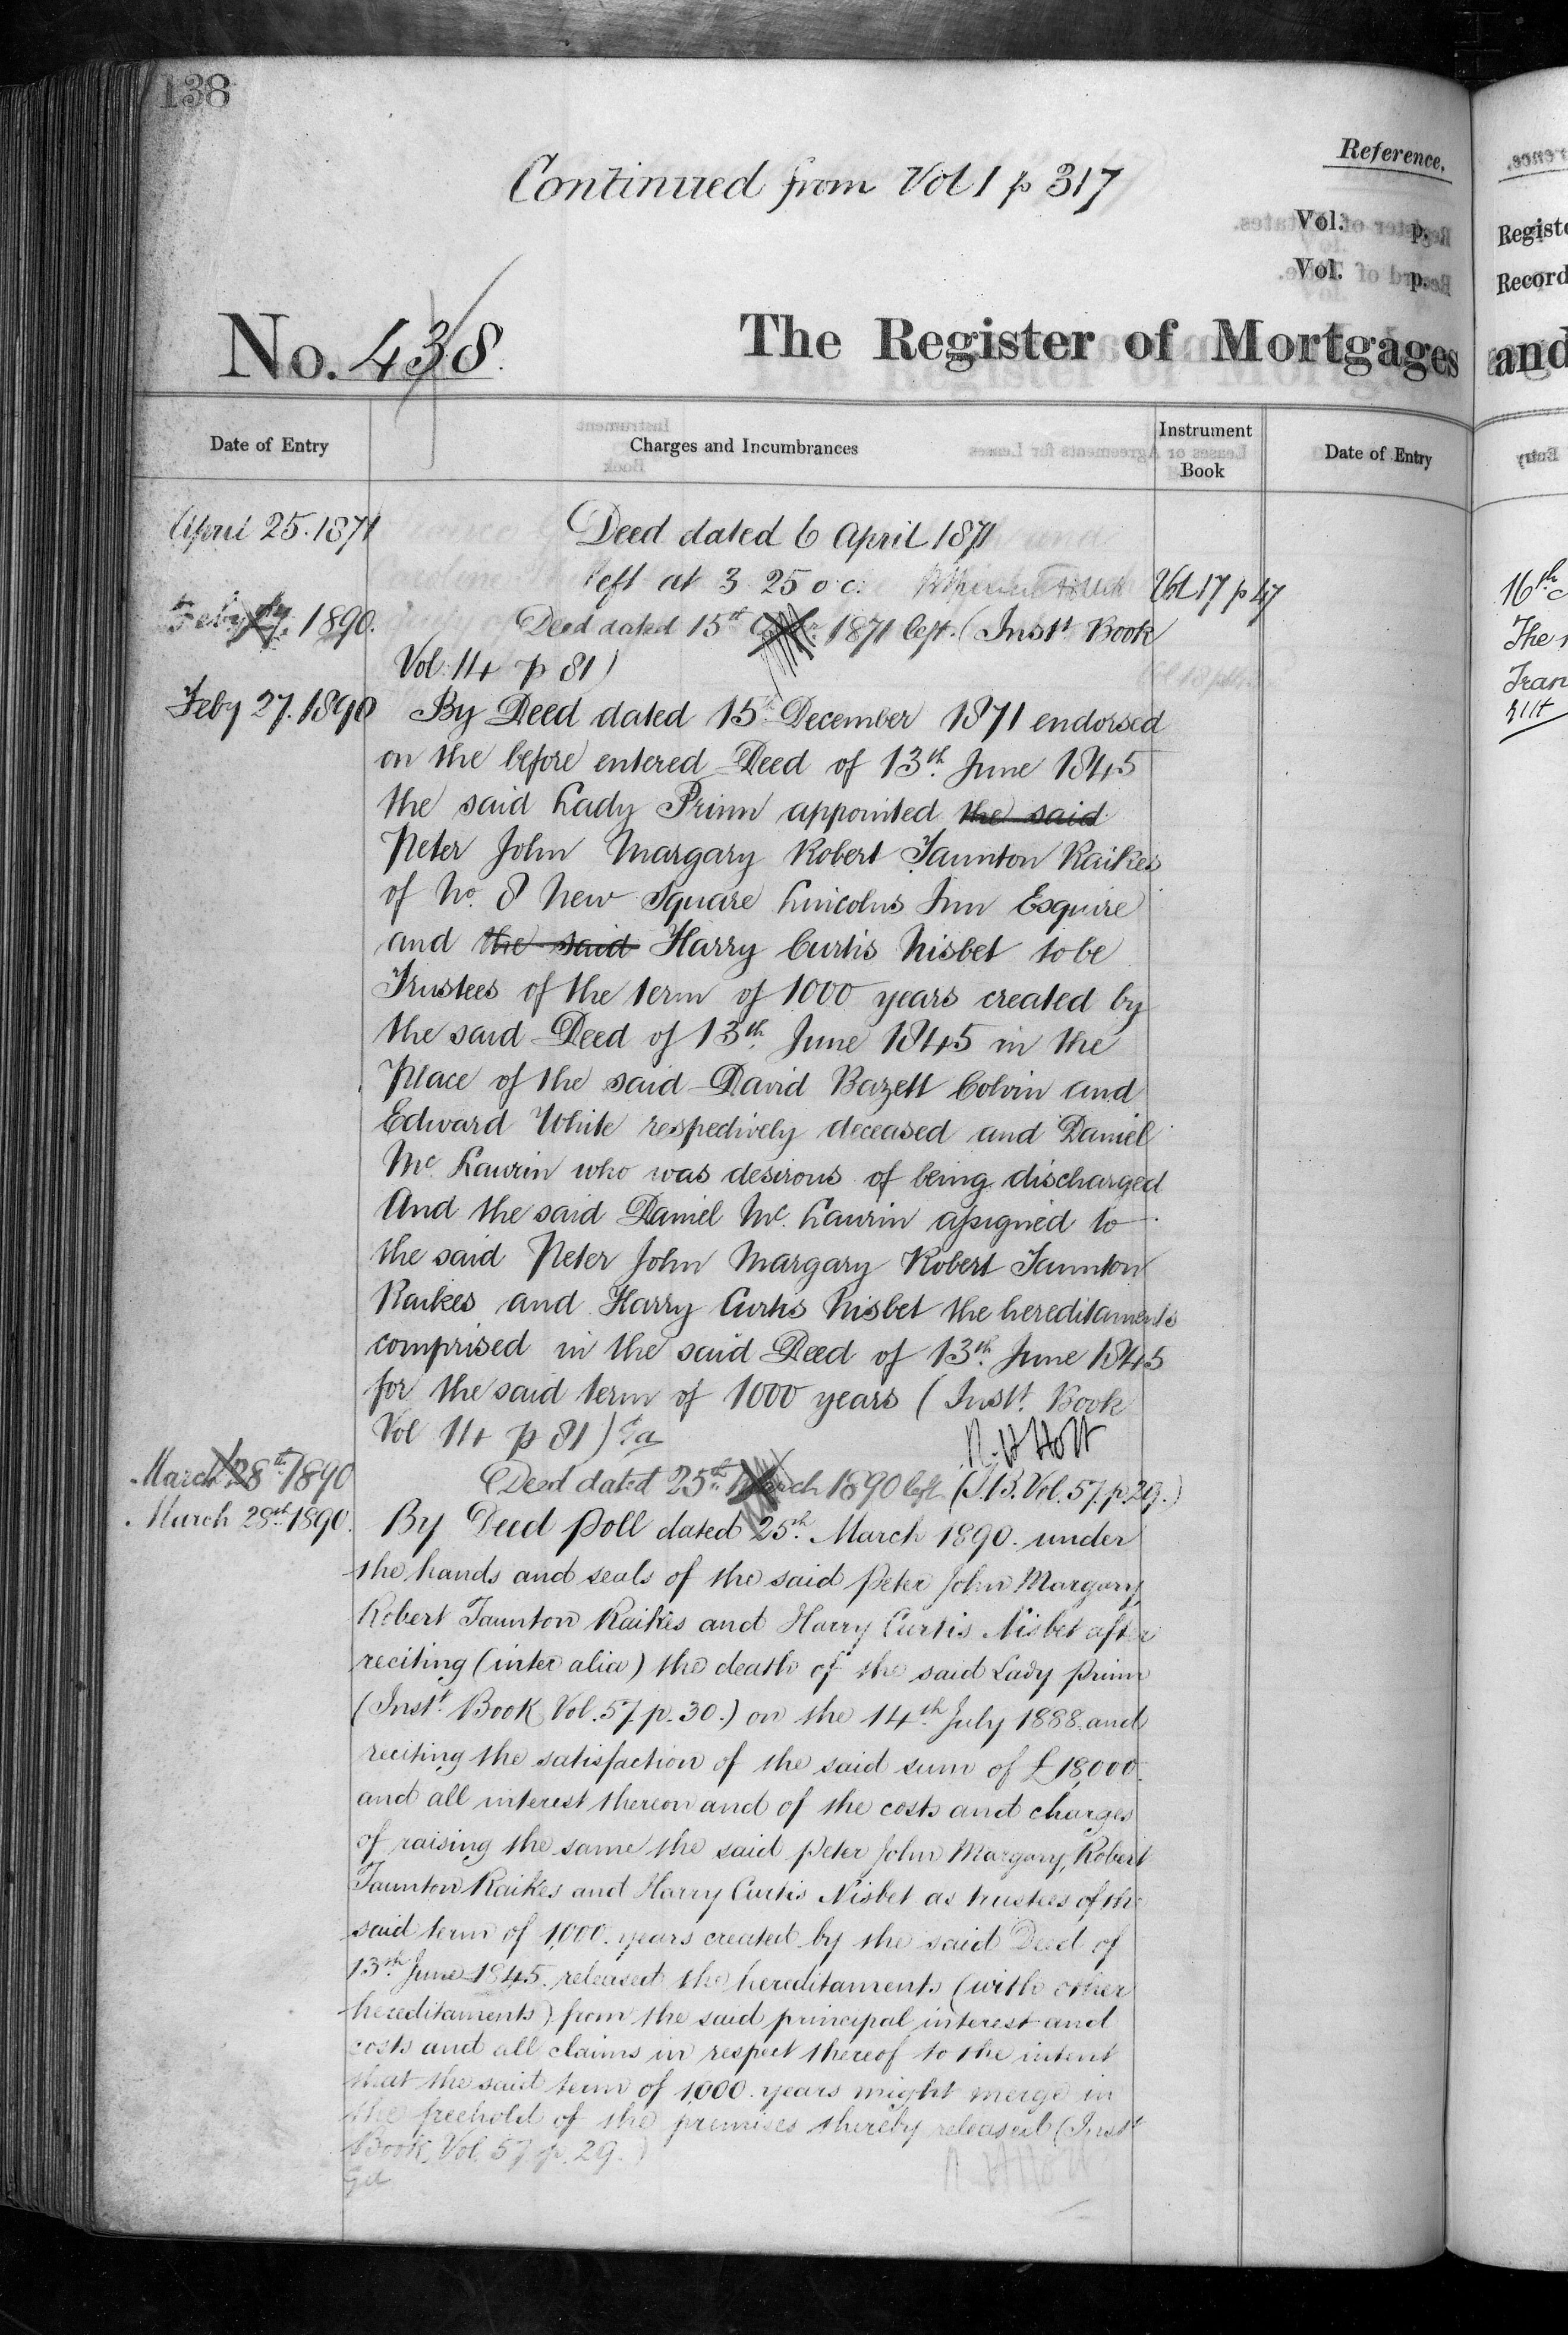 138
Continued from Vol 1 p 317
Reference.
Vol. p.
Vol. p.
No. 438.
The Register of Mortgages
Date of Entry
Charges and Incumbrances
Instrument Book
Date of Entry
April 25. 1871
Deed dated 6 April 1871
left at 3 25 o c.
Vol. 17 p 47
Feby 27. 1890.
Deed dated 15th 1871 left. (Inst. Book
Vol. 14 p 81)
Feby 27. 1890
By Deed dated 15th December 1871 endorsed
on the before entered Deed of 13th. June 1845
the said Lady Prinn appointed the said
Peter John Margary Robert Taunton Raikes
of No. 8 New Square Lincolns Inn Esquire
and the said Harry Curtis Nisbet to be
Trustees of the term of 1000 years created by
the said Deed of 13th. June 1845 in the
Place of the said David Bazett Colvin and
Edward White respectively deceased and Daniel
Mc. Laurin who was desirous of being discharged
And the said Daniel Mc. Laurin assigned to
the said Peter John Margary Robert Taunton
Raikes and Harry Curtis Nisbet the hereditaments
comprised in the said Deed of 13th. June 1845
for the said term of 1000 years (Inst. Book
Vol 14 p 81)
R. H Holt
March 28th 1890
Deed dated 25th. March 1890 left (I.B. Vol. 57. p. 29.)
March 28th. 1890.
By Deed Poll dated 25th. March 1890. under
the hands and seals of the said Peter John Margary,
Robert Taunton Raikes and Harry Curtis Nisbet after
reciting (inter alia) the death of the said Lady Prinn
(Inst. Book Vol. 57. p. 30.) on the 14th. July 1888. and
reciting the satisfaction of the said sum of £18,000.
and all interest thereon and of the costs and charges
of raising the same the said Peter John Margary, Robert
Taunton Raikes and Harry Curtis Nisbet as trustees of the
said term of 1,000. years created by the said Deed of
13th. June 1845. released the hereditaments (with other
hereditaments) from the said principal interest and
costs and all claims in respect thereof to the intent
that the said term of 1,000. years might merge in
the freehold of the premises thereby released (Inst.
Book, Vol. 57. p. 29.)
R. H Holt
Registe
Record
and
16th
The
Tran